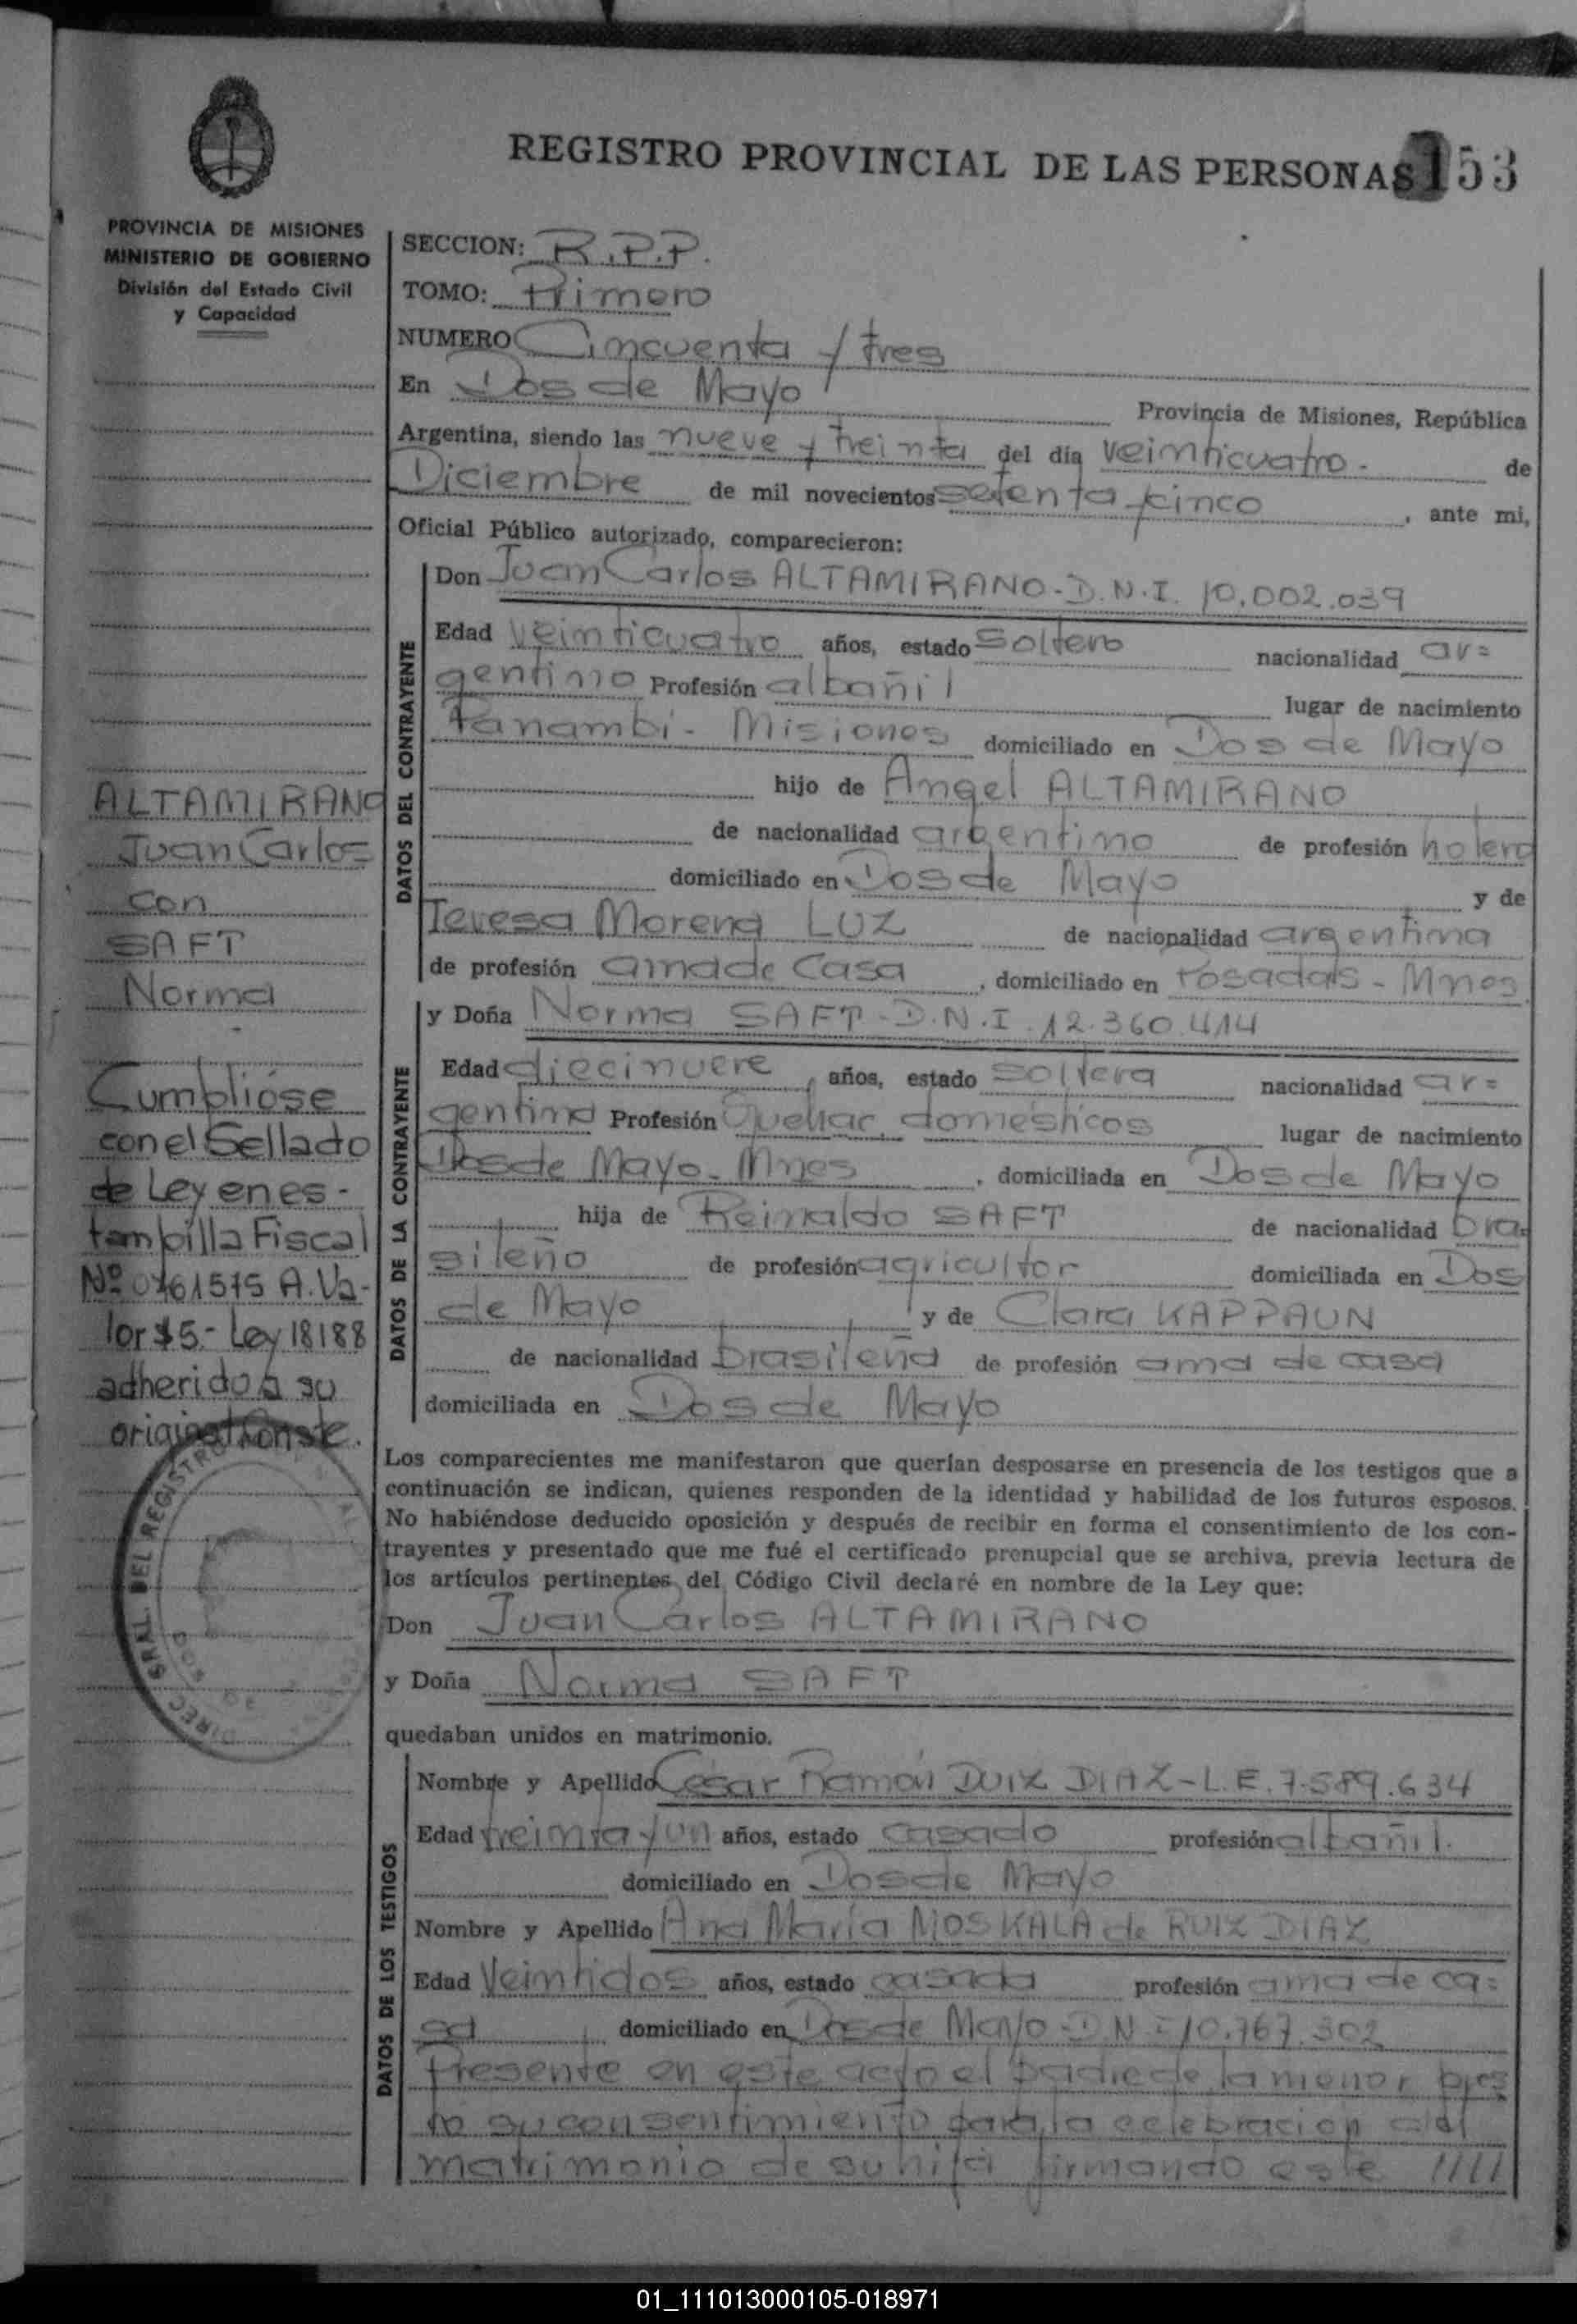 REGISTRO PROVINCIAL DE LAS PERSONAS 153
PROVINCIA DE MISIONES
MINISTERIO DE GOBIERNO
División del Estado Civil
y Capacidad
SECCION: R.P.P.
TOMO: Primero
NUMERO Cincuenta y tres
En Dos de Mayo Provincia de Misiones, República
Argentina, siendo las nueve y treinta del día veinticuatro. de
Diciembre de mil novecientos setenta y cinco, ante mi,
Oficial Público autorizado, comparecieron:
DATOS DEL CONTRAYENTE
Don Juan Carlos ALTAMIRANO - D.N.I. 10.002.039
Edad veinticuatro años, estado soltero nacionalidad ar=
gentino Profesión albañil lugar de nacimiento
Panambí - Misiones domiciliado en Dos de Mayo
hijo de Angel ALTAMIRANO
de nacionalidad argentino de profesión
domiciliado en Dos de Mayo y de
Teresa Morena LUZ de nacionalidad argentina
de profesión ama de casa, domiciliado en Posadas - Mnes
DATOS DE LA CONTRAYENTE
y Doña Norma SAFT - D.N.I. 12.360.414
Edad diecinueve, años, estado soltera nacionalidad ar=
gentina Profesión Quehac. domésticos lugar de nacimiento
Dos de Mayo - Mnes, domiciliada en Dos de Mayo
hija de Reinaldo SAFT de nacionalidad bra=
sileño de profesión agricultor domiciliada en Dos
de Mayo y de Clara KAPPAUN
de nacionalidad brasileña de profesión ama de casa
domiciliada en Dos de Mayo
Los comparecientes me manifestaron que querían desposarse en presencia de los testigos que a
continuación se indican, quienes responden de la identidad y habilidad de los futuros esposos.
No habiéndose deducido oposición y después de recibir en forma el consentimiento de los con-
trayentes y presentado que me fué el certificado prenupcial que se archiva, previa lectura de
los artículos pertinentes del Código Civil declaré en nombre de la Ley que:
Don Juan Carlos ALTAMIRANO
y Doña Norma SAFT
quedaban unidos en matrimonio.
DATOS DE LOS TESTIGOS
Nombre y Apellido César Ramón RUIZ DIAZ - L.E. 7.589.634
Edad treinta y un años, estado casado profesión albañil.
domiciliado en Dos de Mayo
Nombre y Apellido Ana María MOSKALA de RUIZ DIAZ
Edad Veintidos años, estado casada profesión ama de ca=
sa domiciliado en Dos de Mayo - D.N.I 10.767.302
Presente en este acto el padre de la menor pres
ta su consentimiento para la celebración del
matrimonio de su hija firmando este ////
ALTAMIRANO
Juan Carlos
con
SAFT
Norma
Cumplióse
con el Sellado
de Ley en es-
tampilla Fiscal
Nº 0761575 A. Va-
lor $5.- Ley 18188
adherido a su
original Conste.
DIREC. GRAL. DEL REGISTRO
01_111013000105-018971